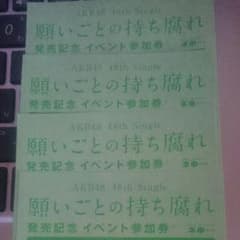 AKB48 48th Single
発売記念 イベント参加券
AKB48 48th Single
願いごとの持ち腐れ
発売記念 イベント参加券
AKB48 48th Single
願いごとの持ち腐れ
発売記念 イベント参加券
AKB48 48th Single
願いごとの持ち腐れ
発売記念 イベント参加券